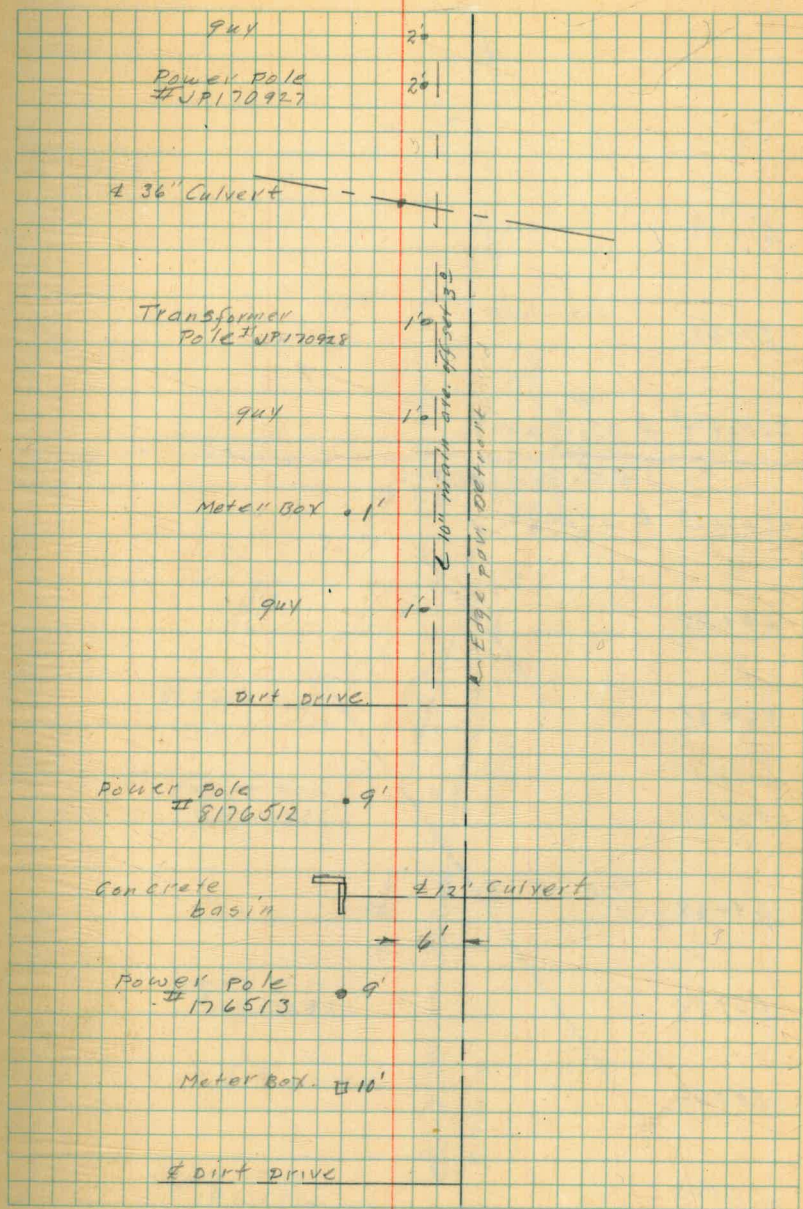 guy 2'
Power Pole 2'
# JP170927
℄ 36" Culvert
Transformer 1'
Pole # JP170928
guy 1'
Meter Box 1'
guy 1'
℄ 10" main ave. offset 3°
Edge pav. Detroit
Dirt Drive
Power Pole 9'
# 8176512
Concrete ℄ 12" Culvert
basin
6'
Power Pole 9'
# 176513
Meter Box. 10'
℄ Dirt Drive